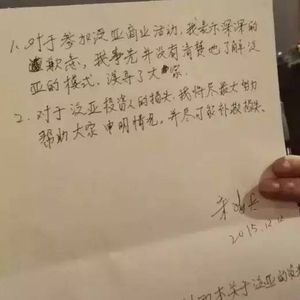 1. 对于参加泛亚商业活动,我表示深深的
歉意,我事先并没有清楚地了解泛
亚的模式,误导了大家.
2. 对于泛亚投资人的损失,我将尽最大的力
帮助大家申明情况,并尽可能补救损失.
2015.12.12
关于泛亚的